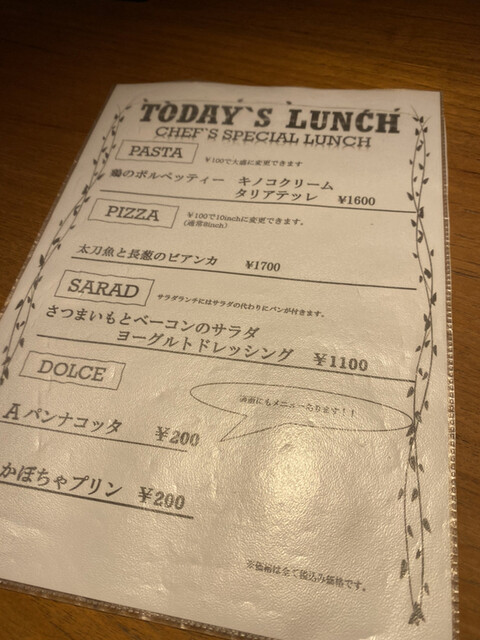 TODAY`S LUNCH
CHEF`S SPECIAL LUNCH
PASTA ￥100で大盛に変更できます
鴨のポルペッティー キノコクリーム
タリアテッレ ¥1600
PIZZA ￥100で10inchに変更できます。
(通常8inch)
太刀魚と長葱のビアンカ ¥1700
SARAD サラダランチにはサラダの代わりにパンが付きます。
さつまいもとベーコンのサラダ
ヨーグルトドレッシング ¥1100
DOLCE
裏面にもメニューあります！！
A パンナコッタ ¥200
かぼちゃプリン ¥200
※価格は全て税込み価格です。